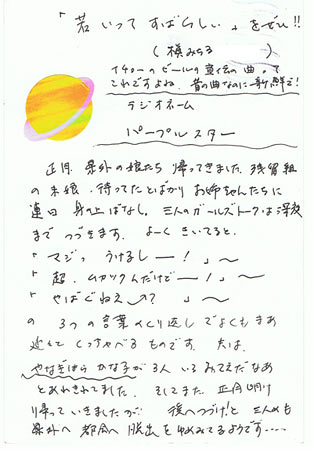 「若いって すばらしい」をぜひ!!
(槇みちる )
イチローのビールの宣伝の曲って
これですよね. 昔の曲なのに新鮮で!
ラジオネーム
パープルスター
正月. 県外の娘たち 帰ってきました. 残留組
の末娘. 待ってたとばかり お姉ちゃんたちに
連日 身の上ばなし. 三人のガールズトークは深夜
まで つづきます. よーく きいてると.
「マジっ うけるしー!」〜
「超. ムカツクんだけどー!」〜
「やばぐねえ〜?」〜
の 3つの言葉のくり返し でよくもまあ
しゃべる ものです. 夫は.
やなぎはら かな子が3人 いるみてえだなあ
とあきれてました. そしてまた 正月明け
帰っていきましたが 後へつづけ!と 三人めも
県外へ 都会へ 脱出を ゆめみてるようです‥‥